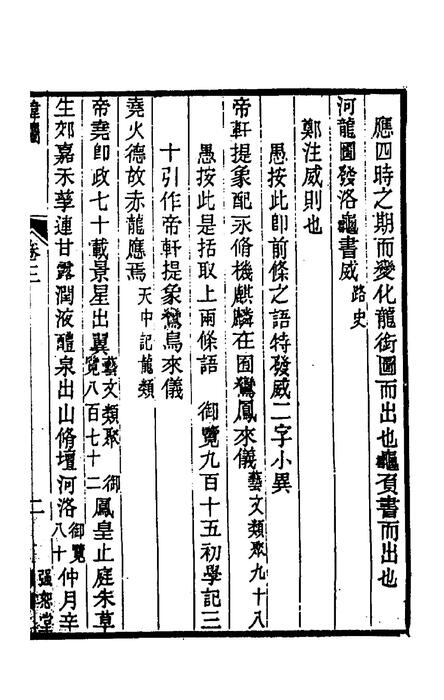 應四時之期而變化龍銜圖而出也龜負書而出也
河龍圖發洛龜書威路史
鄭注威則也
愚按此卽前條之語特發威二字小異
帝軒提象配永脩機麒麟在囿鸞鳳來儀藝文類聚九十八
愚按此是括取上兩條語 御覽九百十五初學記三
十引作帝軒提象鸞鳥來儀
堯火德故赤龍應焉天中記龍類
帝堯卽政七十載景星出翼藝文類聚 御覽八百七十二鳳皇止庭朱草
生郊嘉禾莘連甘露潤液醴泉出山脩壇河洛御覽八十仲月辛
卷三
二